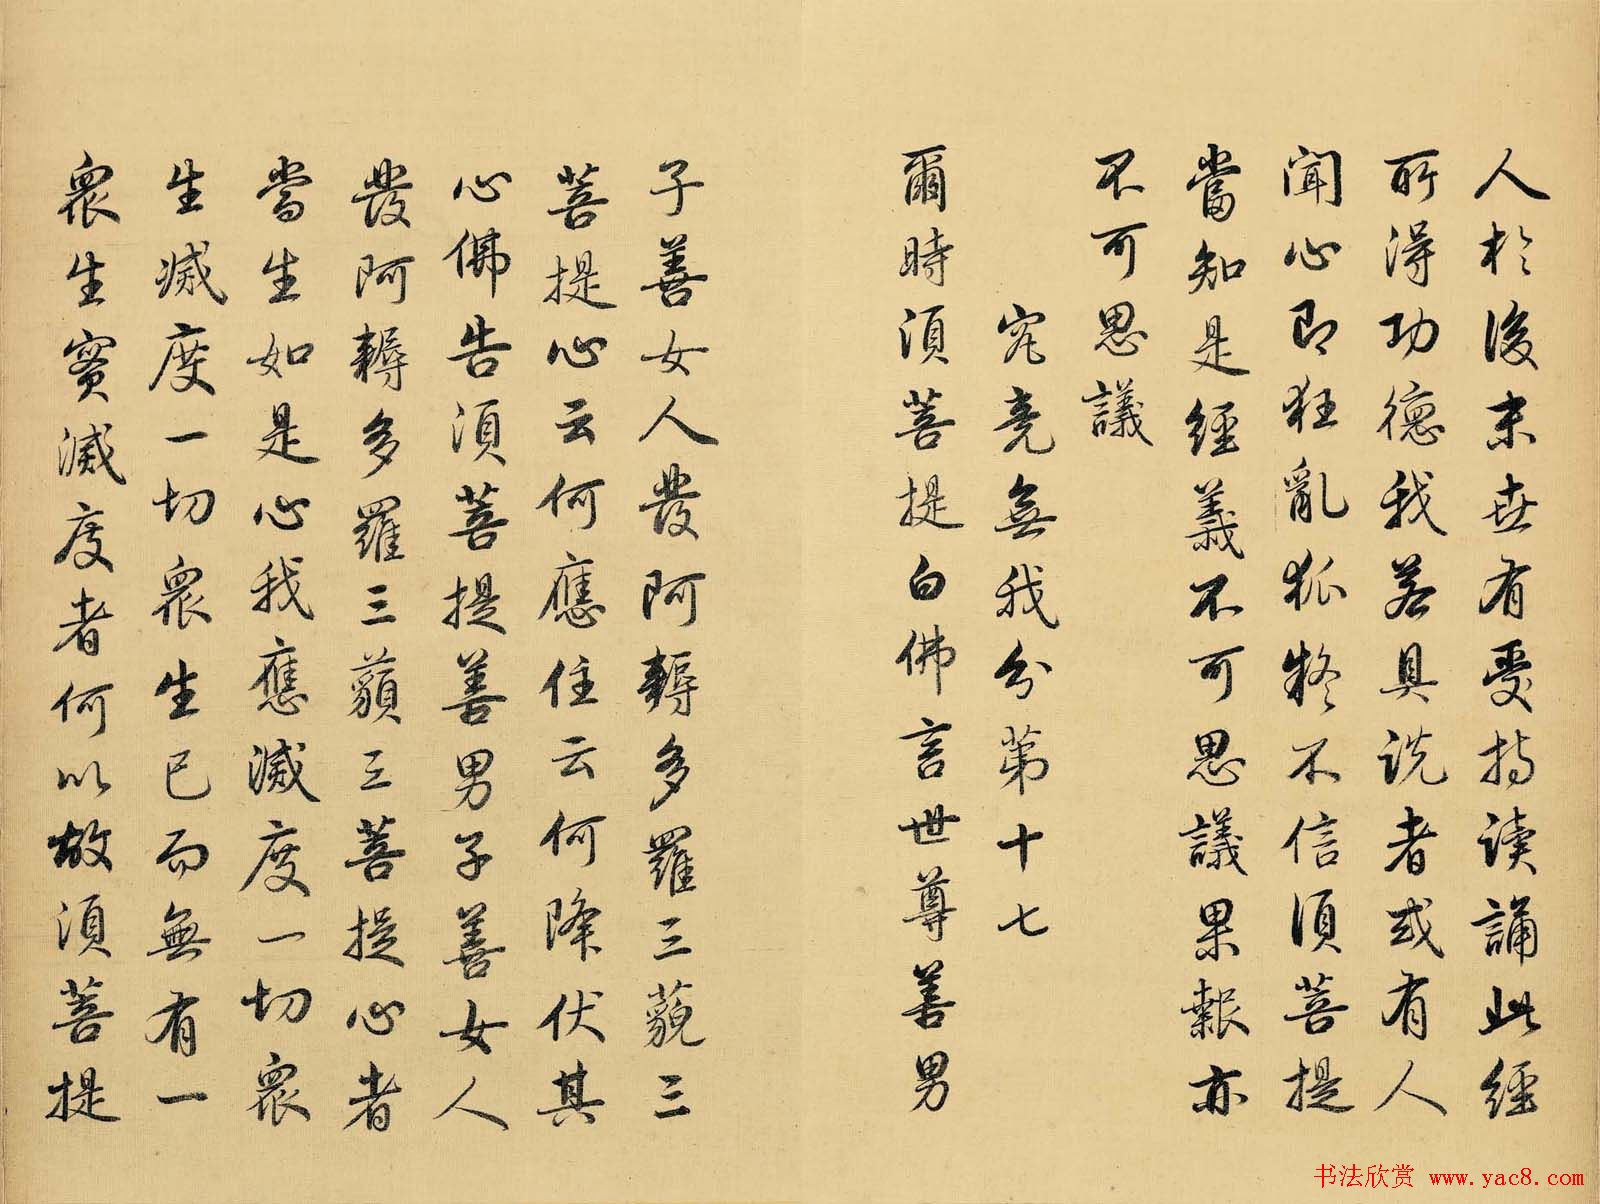 人於後末世有受持讀誦此經
所得功德我若具說者或有人
聞心即狂亂狐疑不信須菩提
當知是經義不可思議果報亦
不可思議
究竟無我分第十七
爾時須菩提白佛言世尊善男
子善女人發阿耨多羅三藐三
菩提心云何應住云何降伏其
心佛告須菩提善男子善女人
發阿耨多羅三藐三菩提心者
當生如是心我應滅度一切眾
生滅度一切眾生已而無有一
眾生實滅度者何以故須菩提
书法欣赏 www.yac8.com